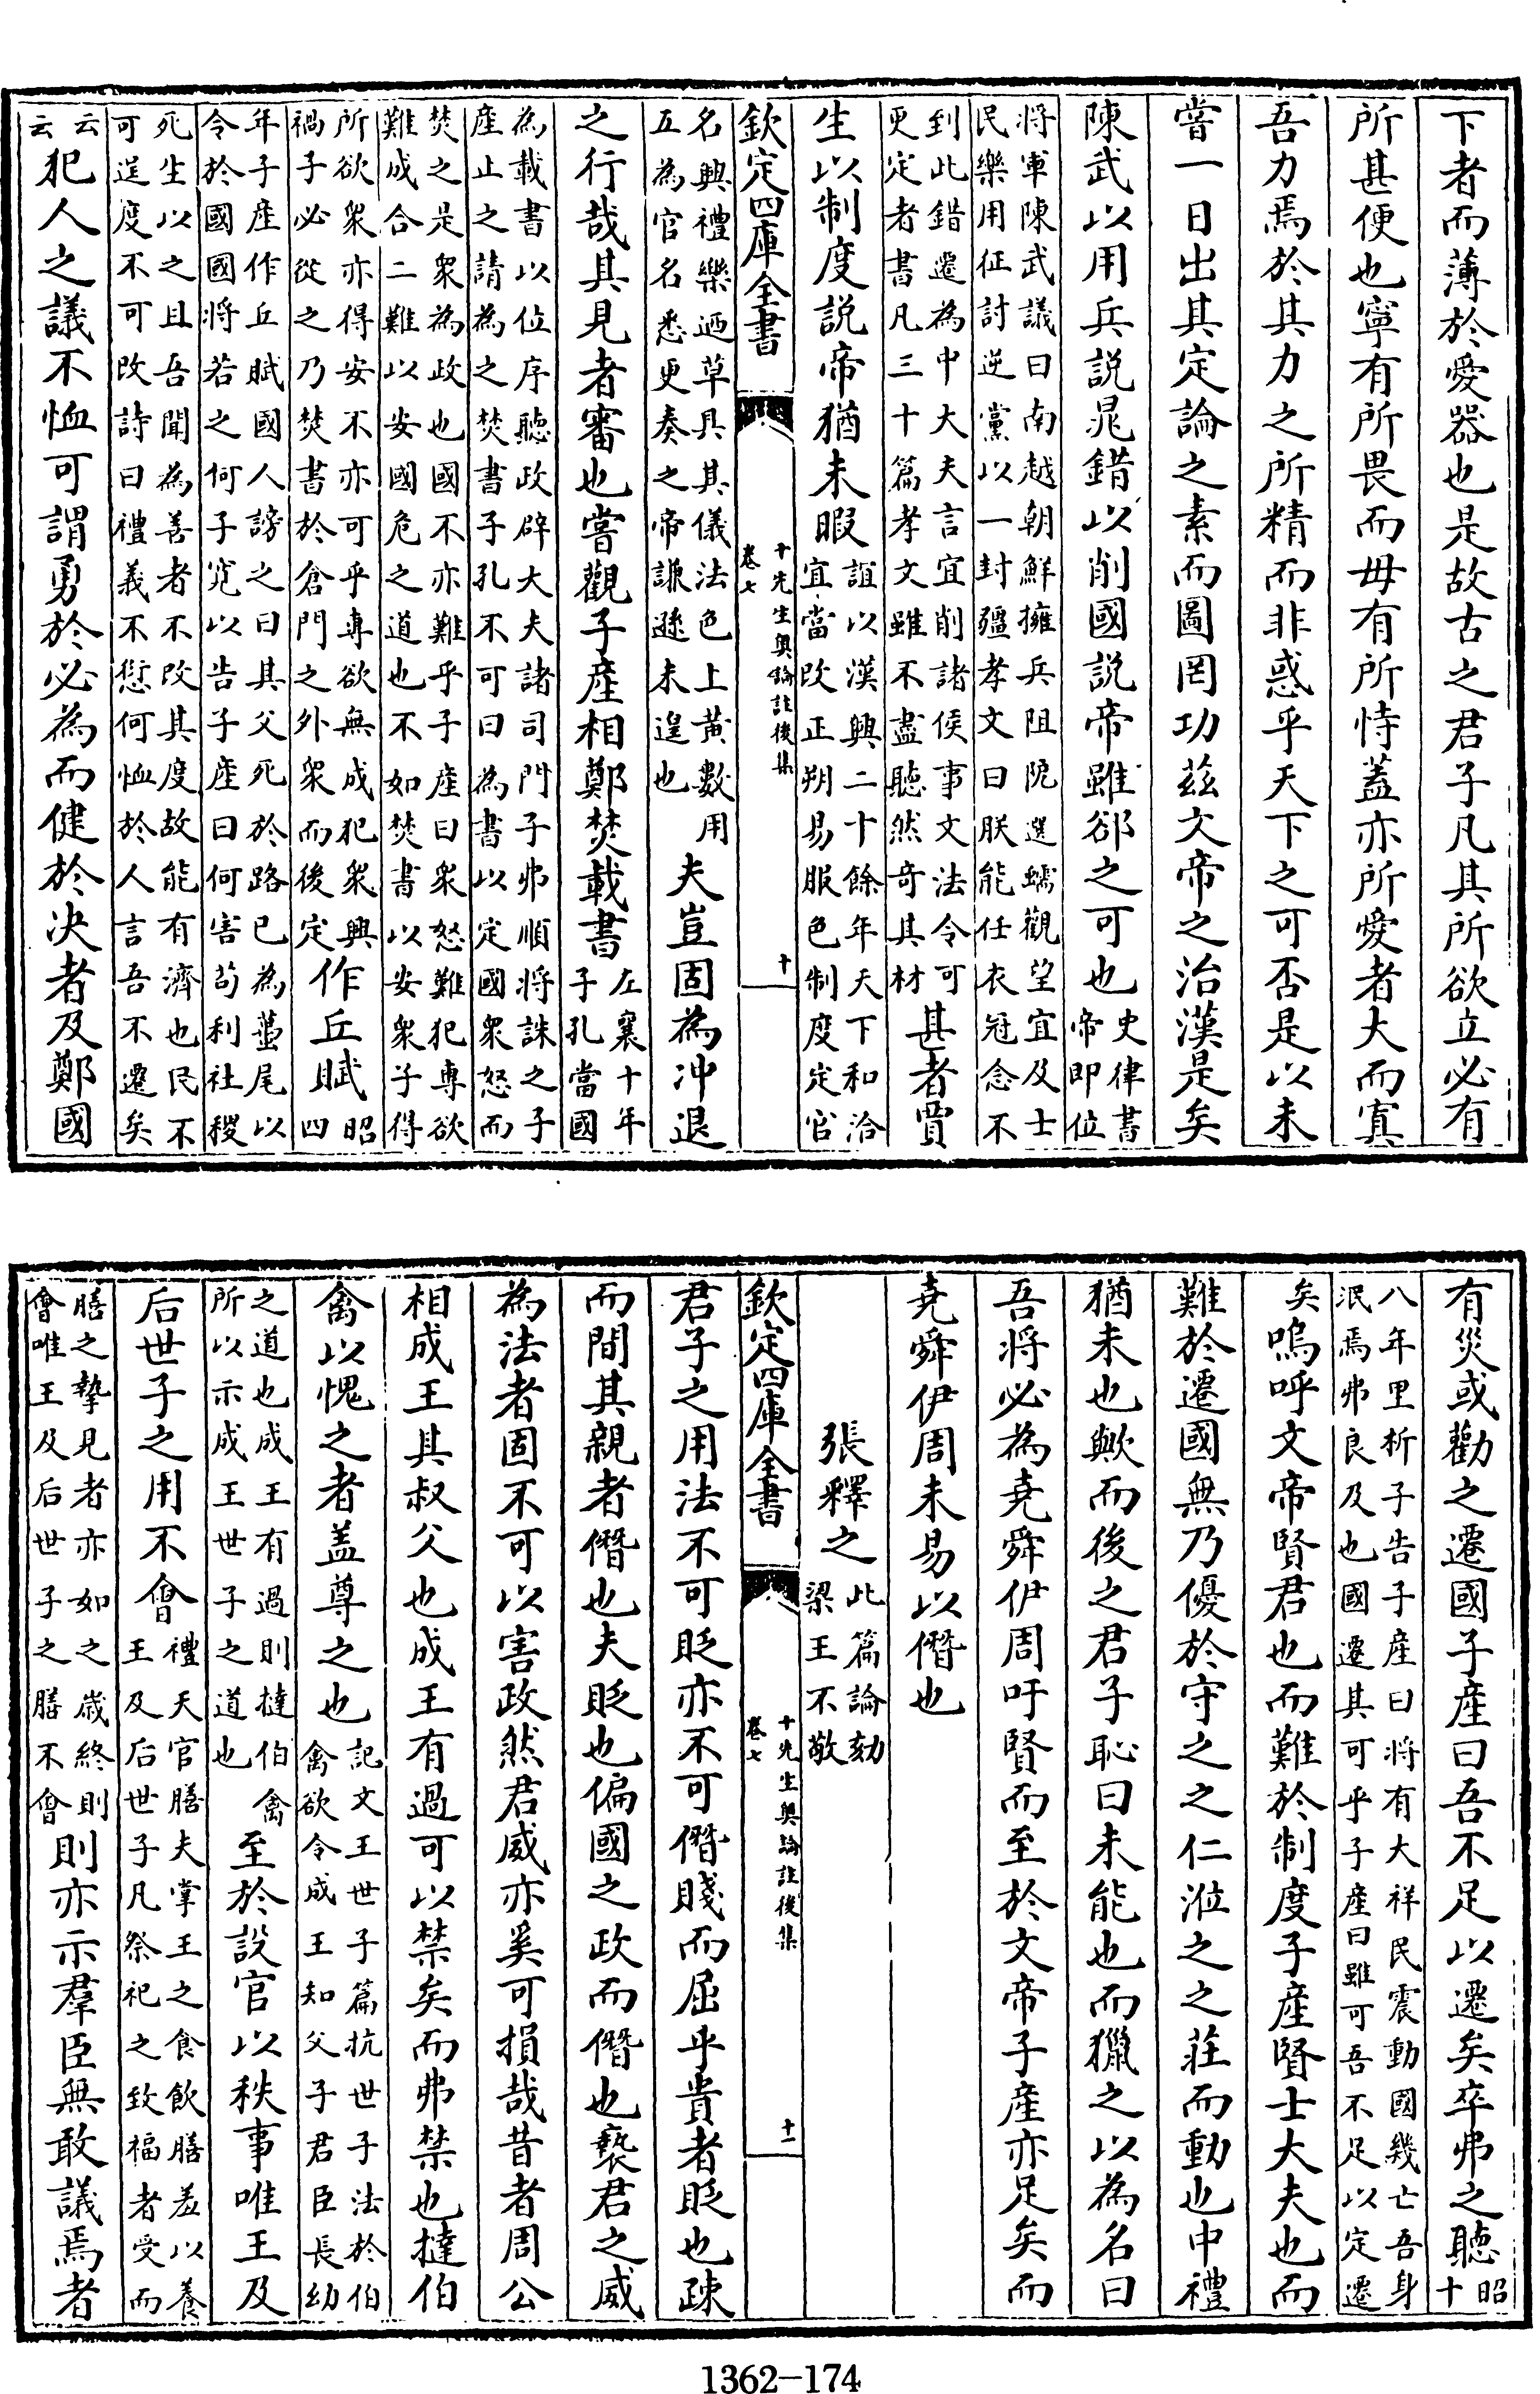 下者而薄於愛器也是故古之君子凡其所欲立必有
所甚便也寧有所畏而毋有所恃蓋亦所愛者大而寘
吾力焉於其力之所精而非惑乎天下之可否是以未
嘗一日出其定論之素而圖罔功茲文帝之治漢是矣
陳武以用兵説晁錯以削國説帝雖郤之可也史律書
帝即位
將軍陳武議曰南越朝鮮擁兵阻阸選蠕觀望宜及士
民樂用征討逆黨以一封疆孝文曰朕能任衣冠念不
到此錯遷為中大夫言宜削諸侯事文法令可
更定者書凡三十篇孝文雖不盡聽然奇其材甚者賈
生以制度説帝猶未暇誼以漢興二十餘年天下和洽
宜當改正朔易服色制度定官
欽定四庫全書
十先生奧論註後集
卷七
十
名興禮樂迺草具其儀法色上黃數用
五為官名悉更奏之帝謙遜未遑也夫豈固為冲退
之行哉其見者審也嘗觀子產相鄭焚載書左襄十年
子孔當國
為載書以位序聽政辟大夫諸司門子弗順將誅之子
產止之請為之焚書子孔不可曰為書以定國衆怒而
焚之是衆為政也國不亦難乎子產曰衆怒難犯專欲
難成合二難以安國危之道也不如焚書以安衆子得
所欲衆亦得安不亦可乎專欲無成犯衆興
禍子必從之乃焚書於倉門之外衆而後定作丘賦昭
四
年子產作丘賦國人謗之曰其父死於路已為蠆尾以
令於國國將若之何子寛以告子產曰何害苟利社稷
死生以之且吾聞為善者不改其度故能有濟也民不
可逞度不可改詩曰禮義不愆何恤於人言吾不遷矣
云
云犯人之議不恤可謂勇於必為而健於决者及鄭國
有災或勸之遷國子產曰吾不足以遷矣卒弗之聽昭
十
八年里析子告子產曰將有大祥民震動國幾亡吾身
泯焉弗良及也國遷其可乎子產曰雖可吾不足以定遷
矣嗚呼文帝賢君也而難於制度子產賢士大夫也而
難於遷國無乃優於守之之仁涖之之莊而動也中禮
猶未也歟而後之君子恥曰未能也而獵之以為名曰
吾將必為堯舜伊周吁賢而至於文帝子產亦足矣而
堯舜伊周未易以僭也
張釋之此篇論劾
梁王不敬
欽定四庫全書
十先生奧論註後集
卷七
十一
君子之用法不可貶亦不可僭賤而屈乎貴者貶也疎
而間其親者僭也夫貶也偏國之政而僭也褻君之威
為法者固不可以害政然君威亦奚可損哉昔者周公
相成王其叔父也成王有過可以禁矣而弗禁也撻伯
禽以愧之者蓋尊之也記文王世子篇抗世子法於伯
禽欲令成王知父子君臣長幼
之道也成王有過則撻伯禽
所以示成王世子之道也至於設官以秩事唯王及
后世子之用不會禮天官膳夫掌王之食飲膳羞以養
王及后世子凡祭祀之致福者受而
膳之摯見者亦如之歲終則
會唯王及后世子之膳不會則亦示羣臣無敢議焉者
1362-174